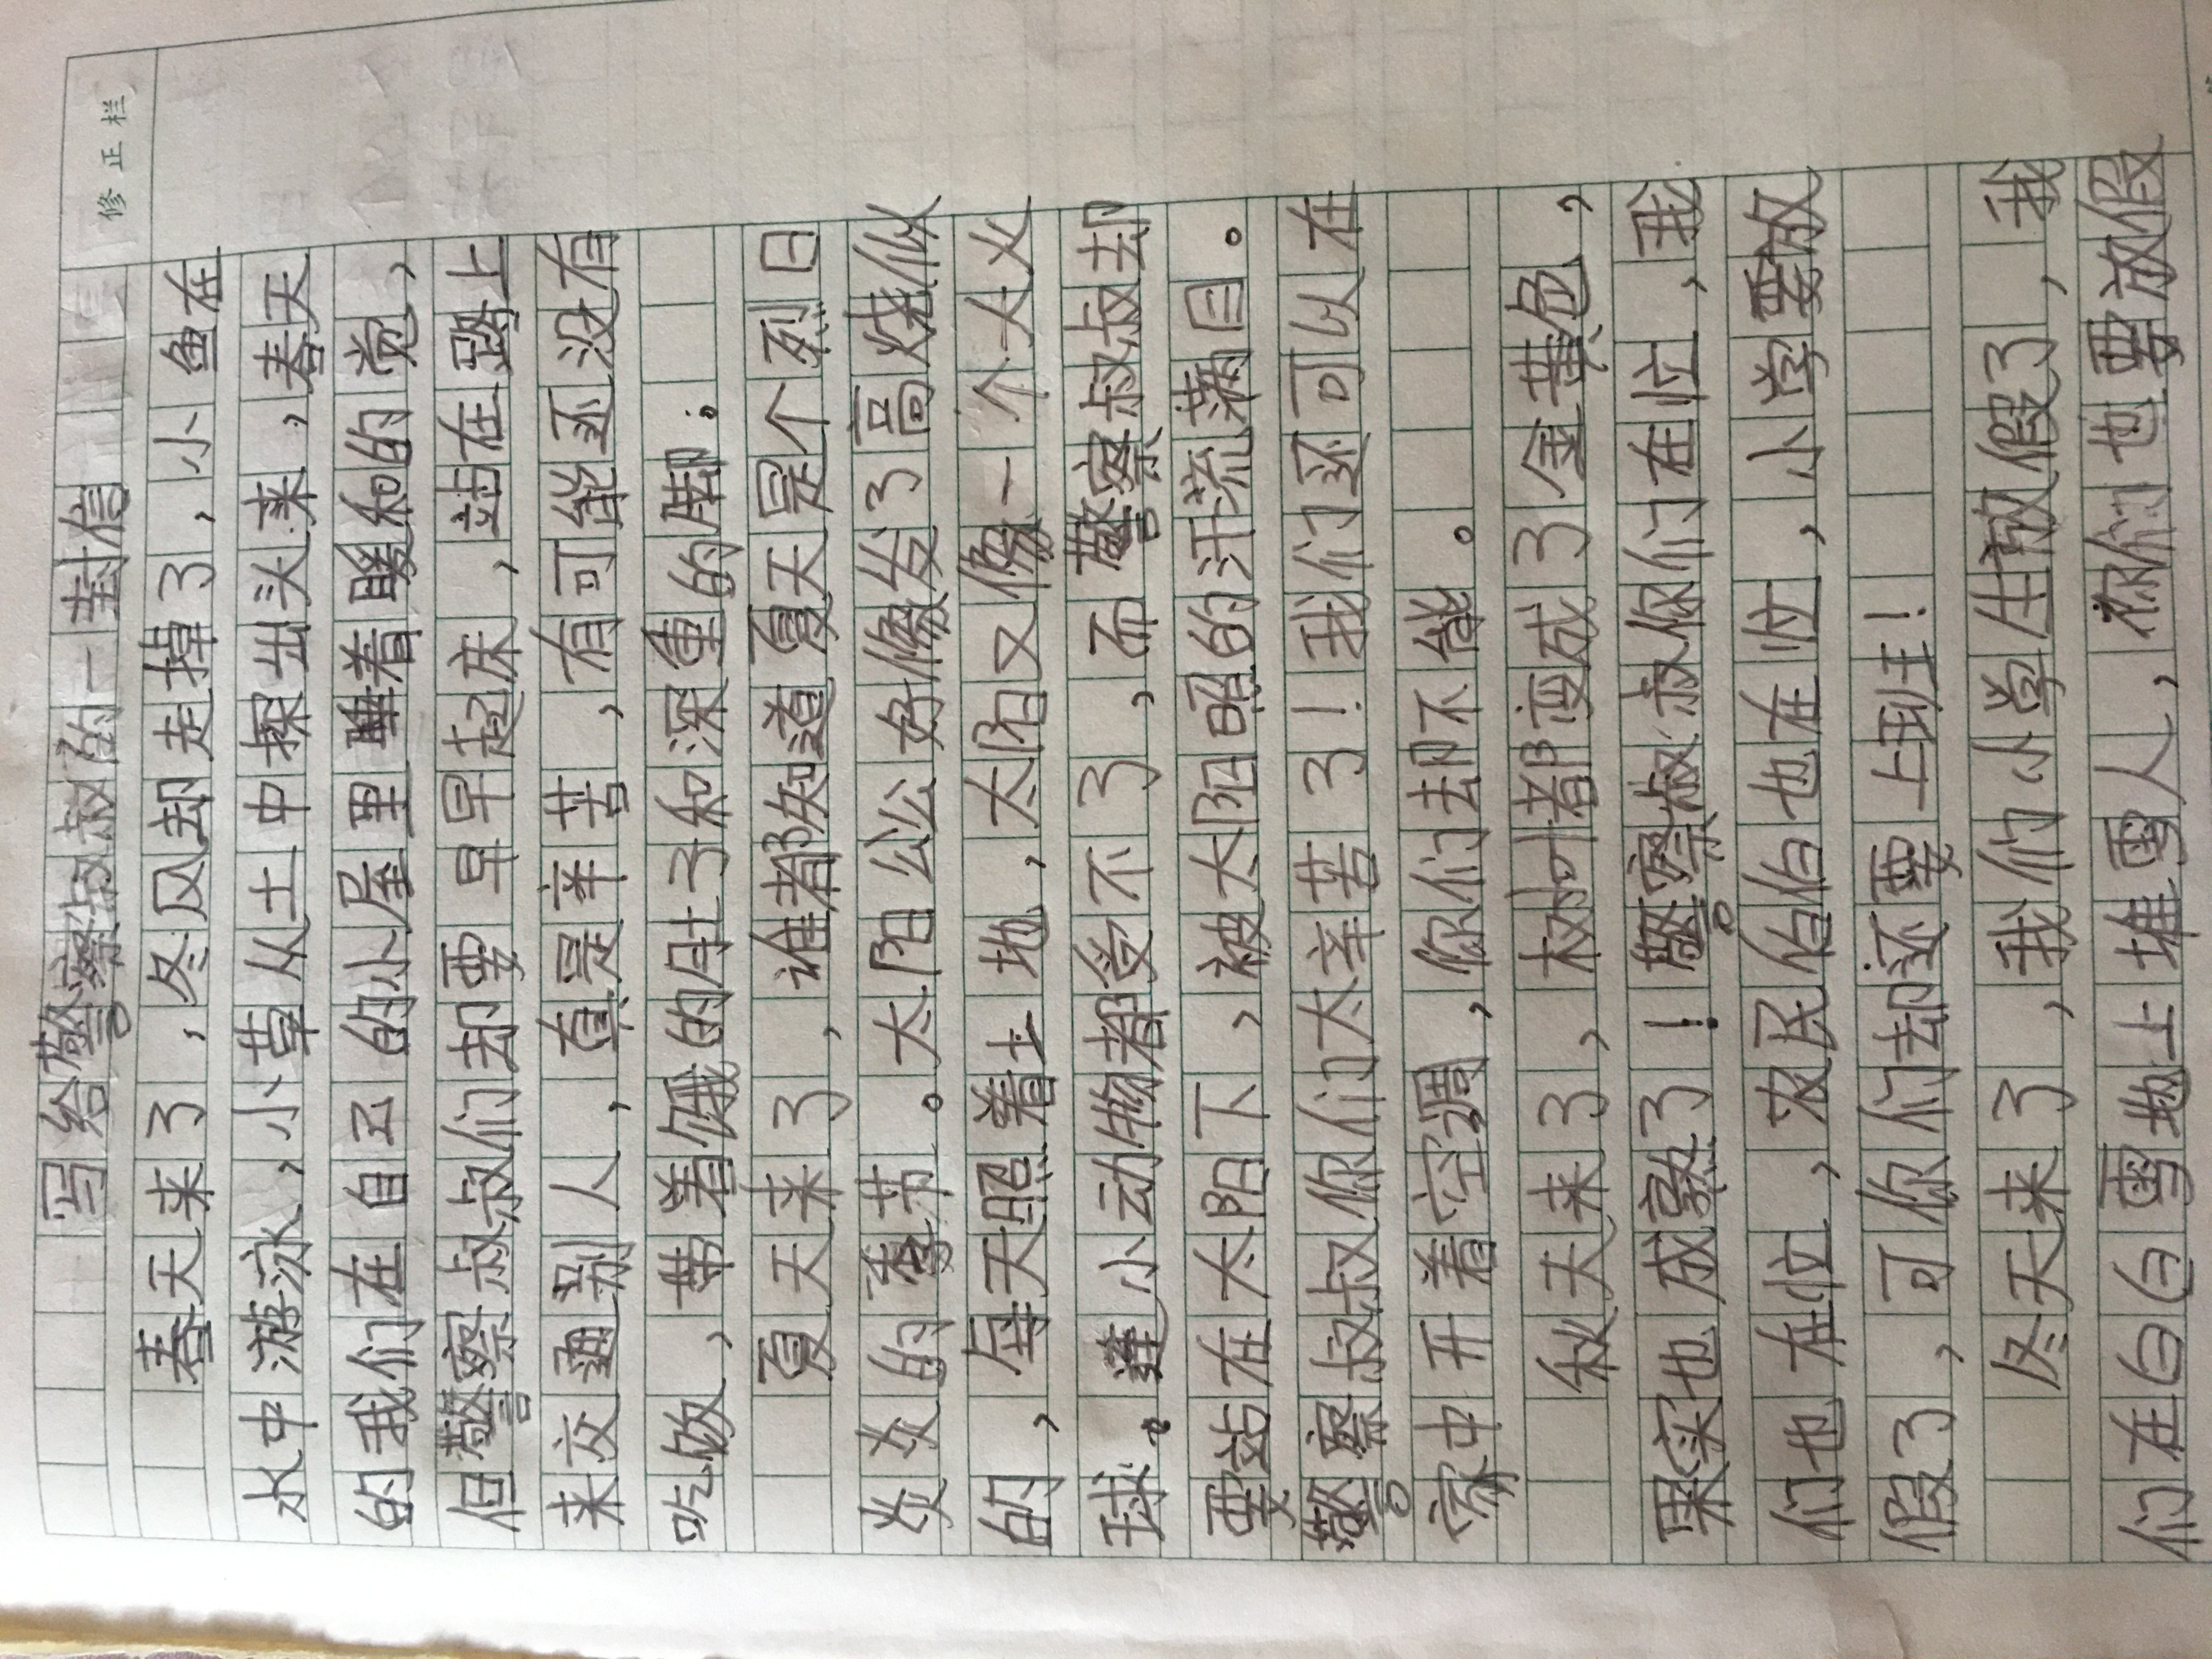 修正栏
写给警察叔叔的一封信
春天来了，冬风却走掉了，小鱼在
水中游泳，小草从土中探出头来，春天
的我们在自己的小屋里睡着暖和的觉，
但警察叔叔们却要早早起床，站在路上
来交通别人，真是辛苦，有可能还没有
吃饭，带着饿的肚子和深重的脚。
夏天来了，谁都知道夏天是个烈日
炎炎的季节。太阳公公好像发了高烧似
的，每天照着土地，太阳又像一个大火
球。连小动物都受不了，而警察叔叔却
要站在太阳下，被太阳照的汗流满目。
警察叔叔你们太辛苦了！我们还可以在
家中开着空调，你们去却不能。
秋天来了，树叶都变成了金黄色，
果实也成熟了！警察叔叔你们在忙，我
们也在忙，农民伯伯也在忙，小学要放
假了，可你们却还要上班！
冬天来了，我们小学生放假了，我
们在白白雪地上堆雪人，你们也要放假